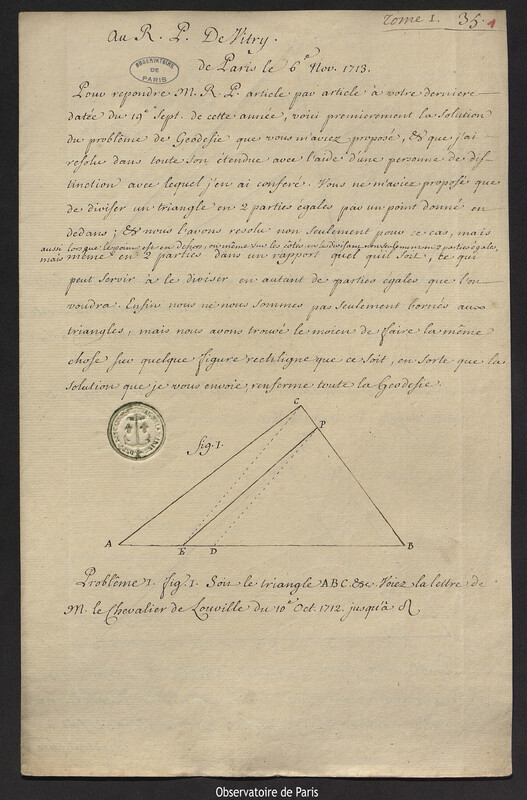 Tome I. 35.
au R. P. De Vitry.
OBSERVATOIRE
DE
PARIS
de Paris le 6e Nov. 1713.
Pour repondre M. R. P. article par article à votre derniere
datée du 19e Sept. de cette année, voici premierement la Solution
du problême de Geodesie que vous m'aviez proposé, & que j'ai
resolu dans toute son étendue avec l'aide d'une personne de dis-
tinction avec lequel j'en ai conferé. Vous ne m'aviez proposé que
de diviser un triangle en 2 parties égales par un point donné en
dedans; & nous l'avons resolu non seulement pour ce cas, mais
aussi lorsque le point est en dehors, ou même sur les côtés, en le divisant non seulement en 2 parties égales,
mais même en 2 parties dans un rapport quel qu'il soit, ce qui
peut servir à le diviser en autant de parties egales que l'on
voudra. Enfin nous ne nous sommes pas seulement bornés aux
triangles, mais nous avons trouvé le moien de faire la même
chose sur quelque figure rectiligne que ce soit, en sorte que la
Solution que je vous envoie, renferme toute la Geodesie.
fig. 1.
C
P
A E D B
Problême 1. fig. 1. Soit le triangle ABC &c. Voiez la lettre de
M. le Chevalier de Louville du 10e Oct. 1712. jusqu'à
Observatoire de Paris